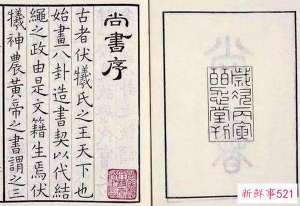 歲次丙寅
皕忍堂刊
尚書序
古者伏犧氏之王天下也
始畫八卦造書契以代結
繩之政由是文籍生焉伏
犧神農黃帝之書謂之三
新鮮事521